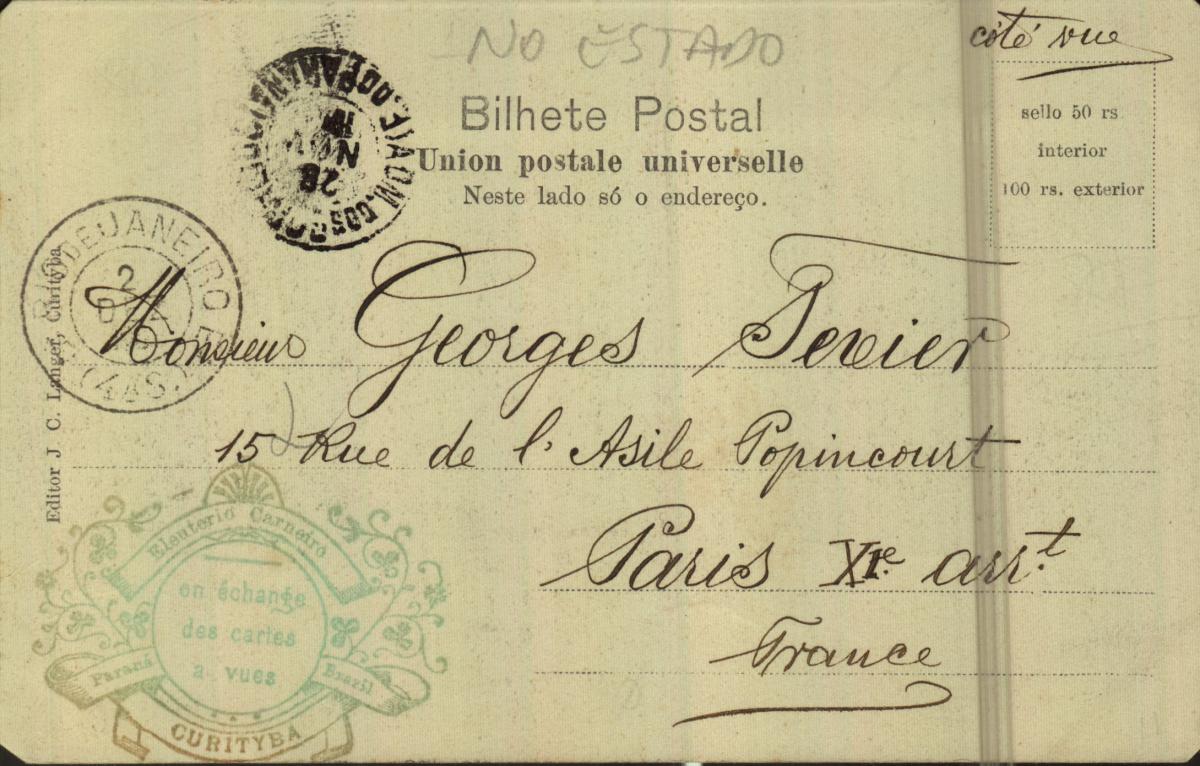 NO ESTADO
côté vue
Bilhete Postal
Union postale universelle
Neste lado só o endereço.
sello 50 rs
interior
100 rs. exterior
28
NOV
RIO DE JANEIRO
2
(4ª S.)
Editor J. C. Langer, Curityba
Monsieur Georges Tevier
15 Rue de l'Asile Popincourt
Paris XIe. arrt.
France
Eleuterio Carneiro
en échange
des cartes
a vues
Paraná Brazil
CURITYBA